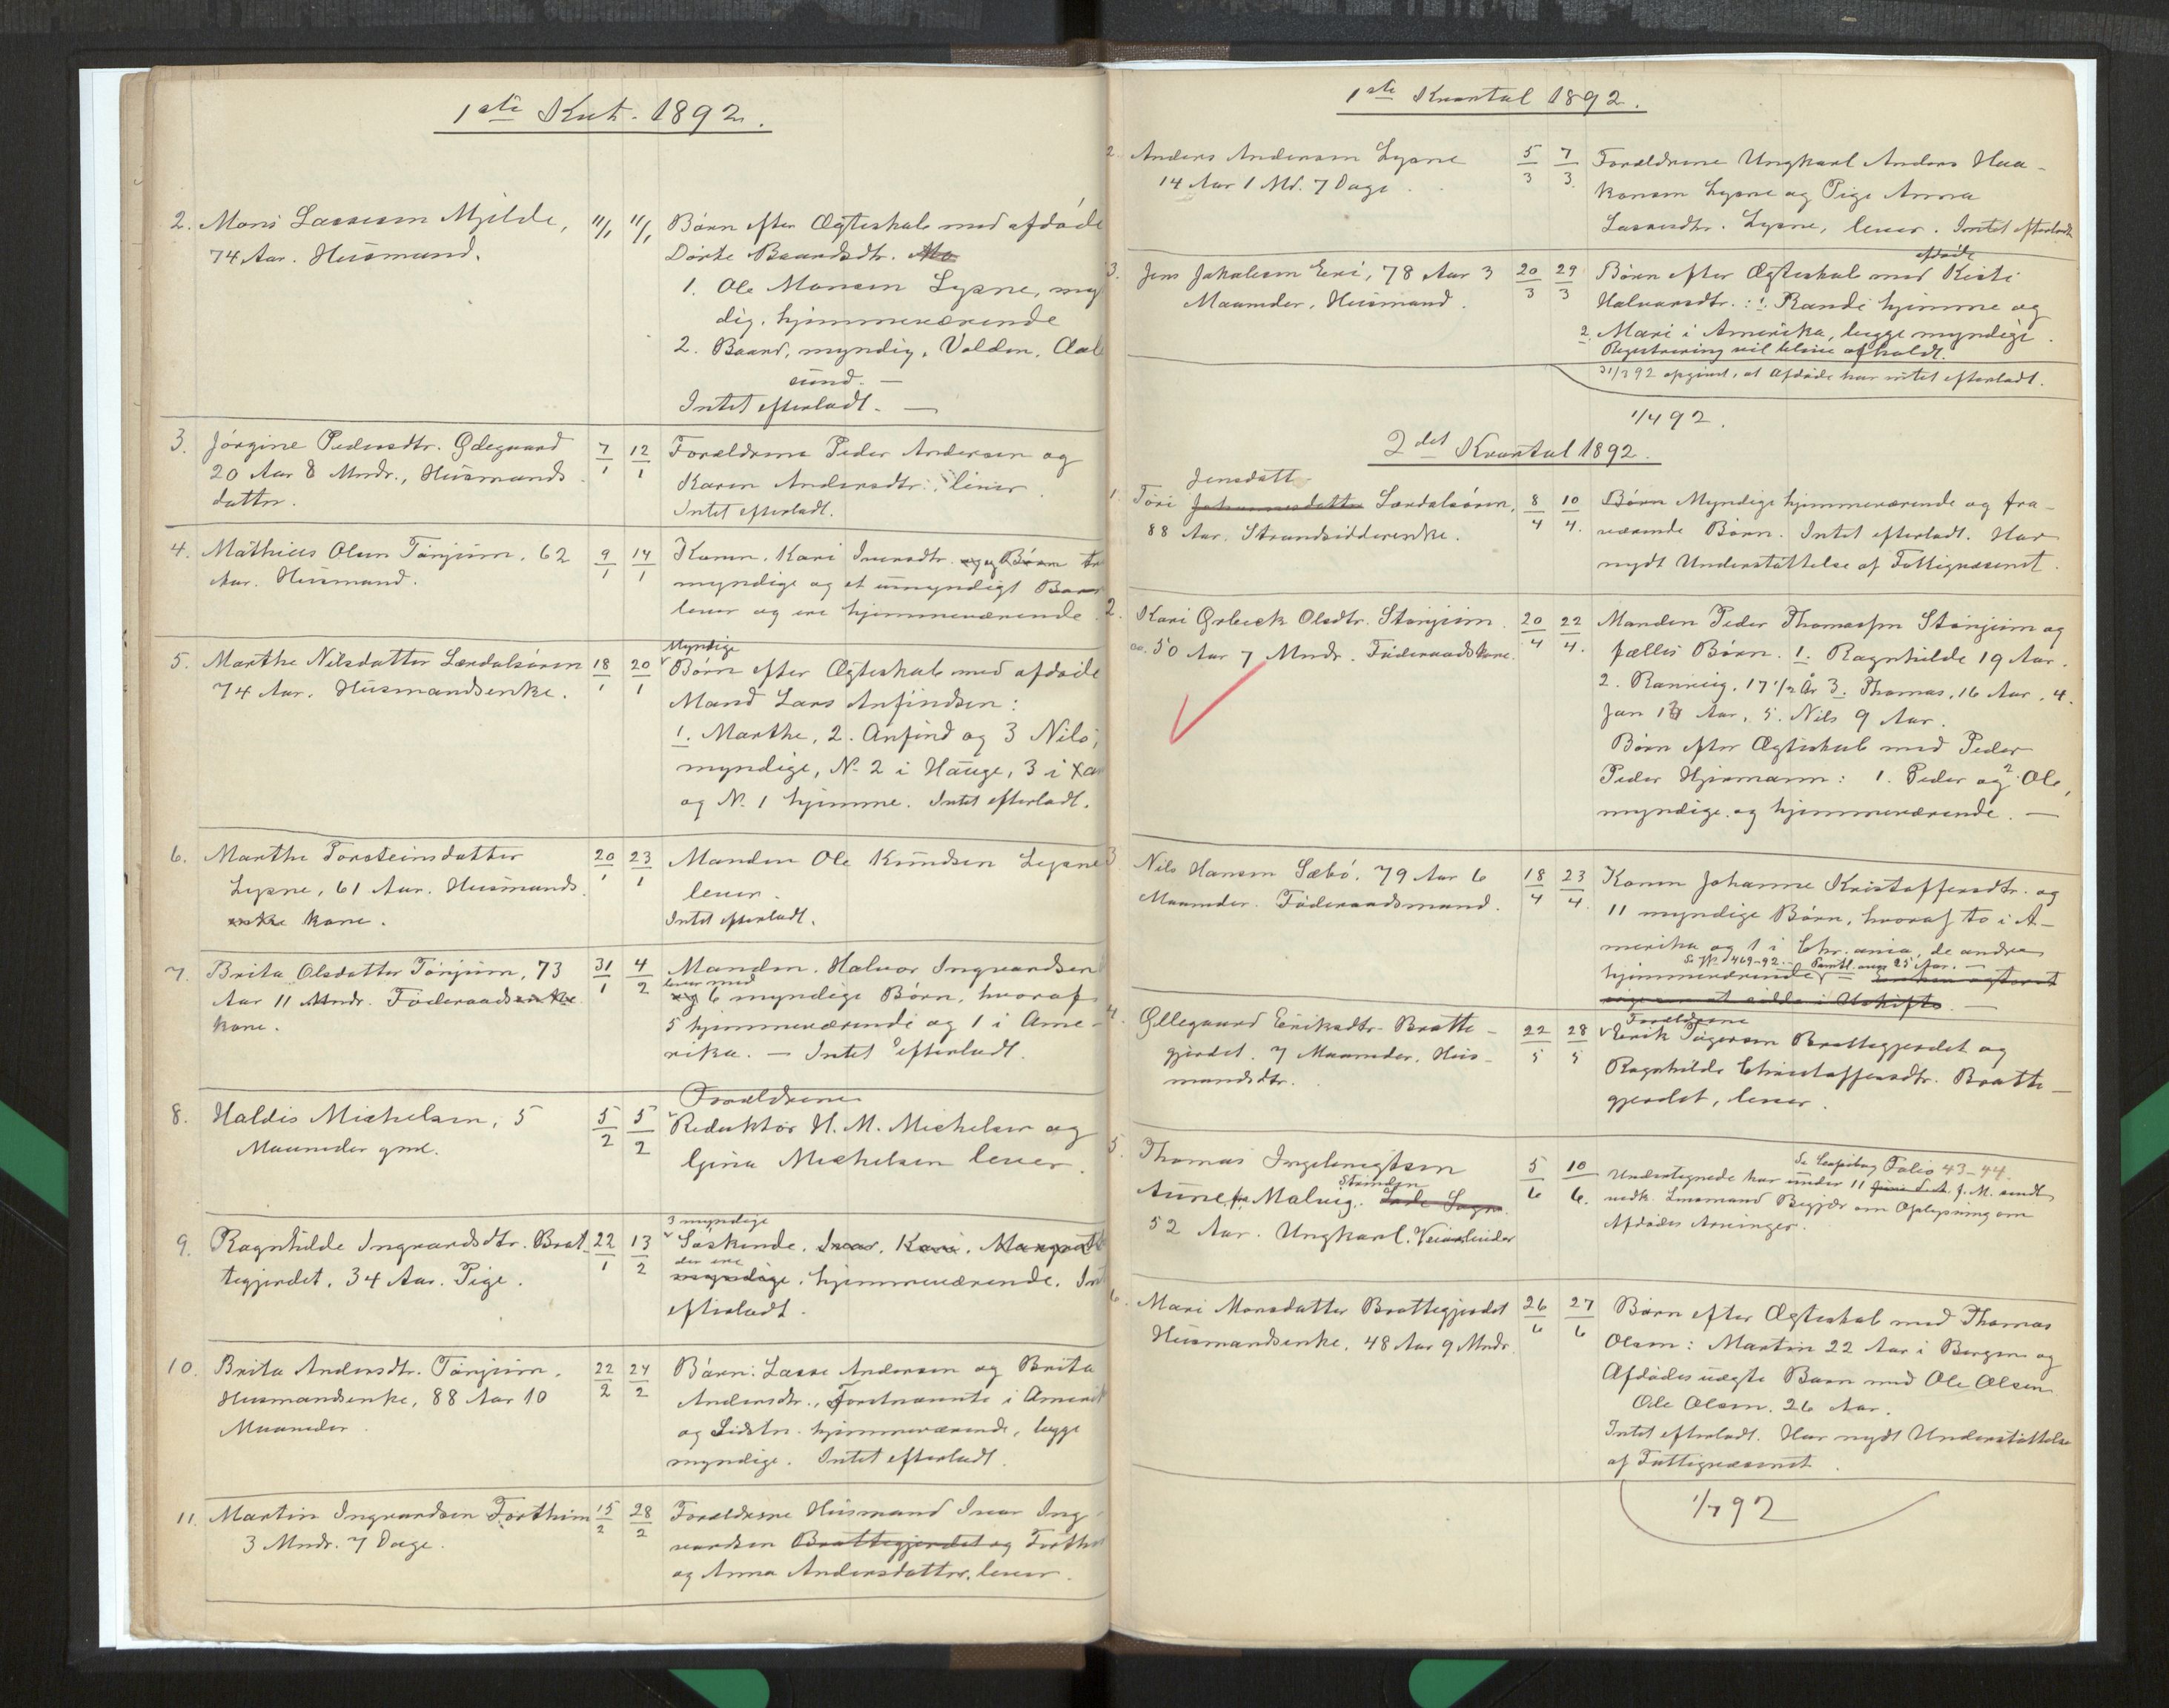 1ste Kvt. 1892.
2. Mons Lassesen Mjelde,
74 Aar. Husmand.
11/1 11/1
Børn efter Ægteskab med afdøde
Dorte Baardsdtr.
1. Ole Monsen Lysne, myn
dig, hjemmeværende
2. Baard, myndig, Volden, Aale
sund. —
Intet efterladt. —
3. Jørgine Pedersdtr. Ødegaard
20 Aar 8 Mndr., Husmands
datter.
7/1 12/1
Forældrene Peder Andersen og
Karen Andersdtr. lever.
Intet efterladt.
4. Mathias Olsen Tønjum, 62
Aar. Husmand.
9/1 14/1
Konen, Kari Iversdtr. og Børn tre
myndige og et umyndigt Barn
lever og ere hjemmeværende.
5. Marthe Nilsdatter Lærdalsøren
74 Aar. Husmandsenke.
18/1 20/1
Myndige
Børn efter Ægteskab med afdøde
Mand Lars Anfindsen:
1. Marthe, 2. Anfind og 3 Nils,
myndige, No 2 i Hauge, 3 i
og No 1 hjemme. Intet efterladt.
6. Marthe Torsteinsdatter
Lysne, 61 Aar. Husmands
enke kone.
20/1 23/1
Manden Ole Knudsen Lysne
lever.
Intet efterladt.
7. Brita Olsdatter Tønjum, 73
Aar 11 Mndr. Føderaadsenke
kone.
31/1 4/2
Manden, Halvor Ingvardsen
lever med
og 6 myndige Børn, hvoraf
5 hjemmeværende og 1 i Ame-
rika. — Intet efterladt.
8. Haldis Michelsen, 5
Maaneder gml.
5/2 5/2
Forældrene
Redaktør H. M. Michelsen og
Gina Michelsen lever.
9. Ragnhilde Ingvardsdtr. Brat-
tegjerdet, 34 Aar. Pige.
22/1 13/2
3 myndige
Søskende, Ivar, Kari, Margrethe
der ere
myndige, hjemmeværende. Int
efterladt.
10. Brita Andersdtr. Tønjum,
Husmandsenke, 88 Aar 10
Maaneder.
22/2 24/2
Børn: Lasse Andersen og Brita
Andersdtr., Førstnævnte i Amerik
og Sidstn. hjemmeværende, begge
myndige. Intet efterladt.
11. Martin Ingvardsen Forthun
3 Mndr. 7 Dage.
15/2 28/2
Forældrene Husmand Ivar Ing-
vardsen Brattegjerdet og Forthun
og Anna Andersdatter, lever.
1ste Kvartal 1892.
2. Anders Andersen Lysne
14 Aar 1 Md. 7 Dage.
5/3 7/3
Forældrene Ungkarl Anders Haa-
konsen Lysne og Pige Anna
Lassesdtr. Lysne, lever. Intet efterladt
3. Jens Jakobsen Eri, 78 Aar 3
Maaneder, Husmand.
20/3 29/3
afdøde
Børn efter Ægteskab med Kirsti
Halvorsdtr.: 1. Randi hjemme og
2. Mari i Amerika, begge myndige.
Registrering vil blive afholdt.
31/3 92 opgivet, at Afdøde har intet efterladt.
1/4 92.
2det Kvartal 1892.
Jensdatt
1. Tori Johannesdatter Lærdalsøren,
88 Aar. Strandsidderenke.
8/4 10/4
Børn Myndige hjemmeværende og fra-
værende Børn. Intet efterladt. Har
nydt Understøttelse af Fattigvæsenet.
2. Kari Grbeck Olsdtr. Stønjum.
50 Aar 7 Mndr. Føderaadskone.
20/4 22/4
Manden Peder Thomassen Stønjum og
fælles Børn. 1. Ragnhilde 19 Aar.
2. Rannveig, 17 1/2 År 3. Thomas, 16 Aar, 4.
Jan 13 Aar, 5. Nils 9 Aar.
Børn efter Ægteskab med Peder
Peder Hjermann: 1. Peder og 2. Ole,
myndige og hjemmeværende. —
3. Nils Hansen Sæbø, 79 Aar 6
Maaneder. Føderaadsmand.
18/4 23/4
Konen Johanne Kristoffersdtr. og
11 myndige Børn, hvoraf to i A-
merika og 1 i Chr.ania, de andre
469-92. 25 Aar. —
hjemmeværende
4. Øllegaard Eriksdtr. Bratte-
gjerdet. 7 Maaneder. Hus-
mandsdtr.
22/5 28/5
Forældrene
Erik Jugersen Brattegjerdet og
Ragnhilde Christoffersdtr. Bratte-
gjerdet, lever.
5. Thomas Ingebrigtsen
Strinden
Aune, fr. Malvig. Lade Sogn.
52 Aar. Ungkarl. Veiarbeider
5/6 10/6
Se Kopibog Folio 43-44.
Undertegnede har under 11 dennes f. M. sendt
vedk. Lensmand Begjær om Oplysning om
Afdødes Arvinger.
6. Mari Monsdatter Brattegjerdet
Husmandsenke, 48 Aar 9 Mndr.
26/6 27/6
Børn efter Ægteskab med Thomas
Olsen: Martin 22 Aar i Bergen og
Afdødes uægte Barn med Ole Olsen
Ole Olsen, 26 Aar.
Intet efterladt. Har nydt Understøttelse
af Fattigvæsenet.
1/7 92